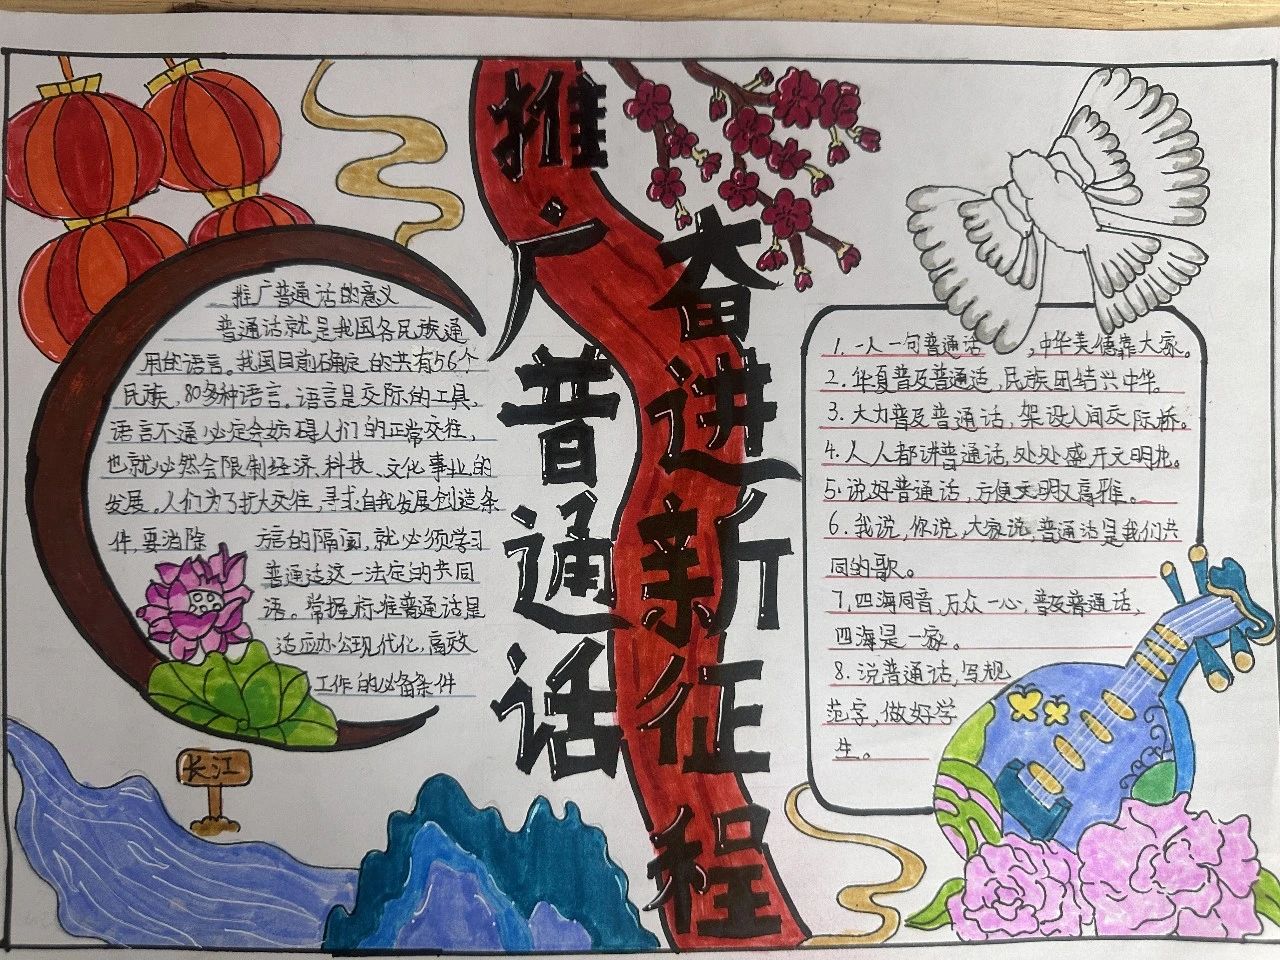 推广普通话
奋进新征程
推广普通话的意义
普通话就是我国各民族通
用的语言。我国目前确定的共有56个
民族，80多种语言。语言是交际的工具，
语言不通必定会妨碍人们的正常交往，
也就必然会限制经济、科技、文化事业的
发展。人们为了扩大交往，寻求自我发展创造条
件，要消除方言的隔阂，就必须学习
普通话这一法定的共同
语。掌握标准普通话是
适应办公现代化，高效
工作的必备条件
长江
1.一人一句普通话，中华美德靠大家。
2.华夏普及普通适，民族团结兴中华。
3.大力普及普通话，架设人间交际桥。
4.人人都讲普通话，处处盛开文明花。
5.说好普通话，方便文明又高雅。
6.我说，你说，大家说，普通话是我们共
同的歌。
7.四海同音，万众一心，普及普通话，
四海是一家。
8.说普通话，写规
范字，做好学
生。